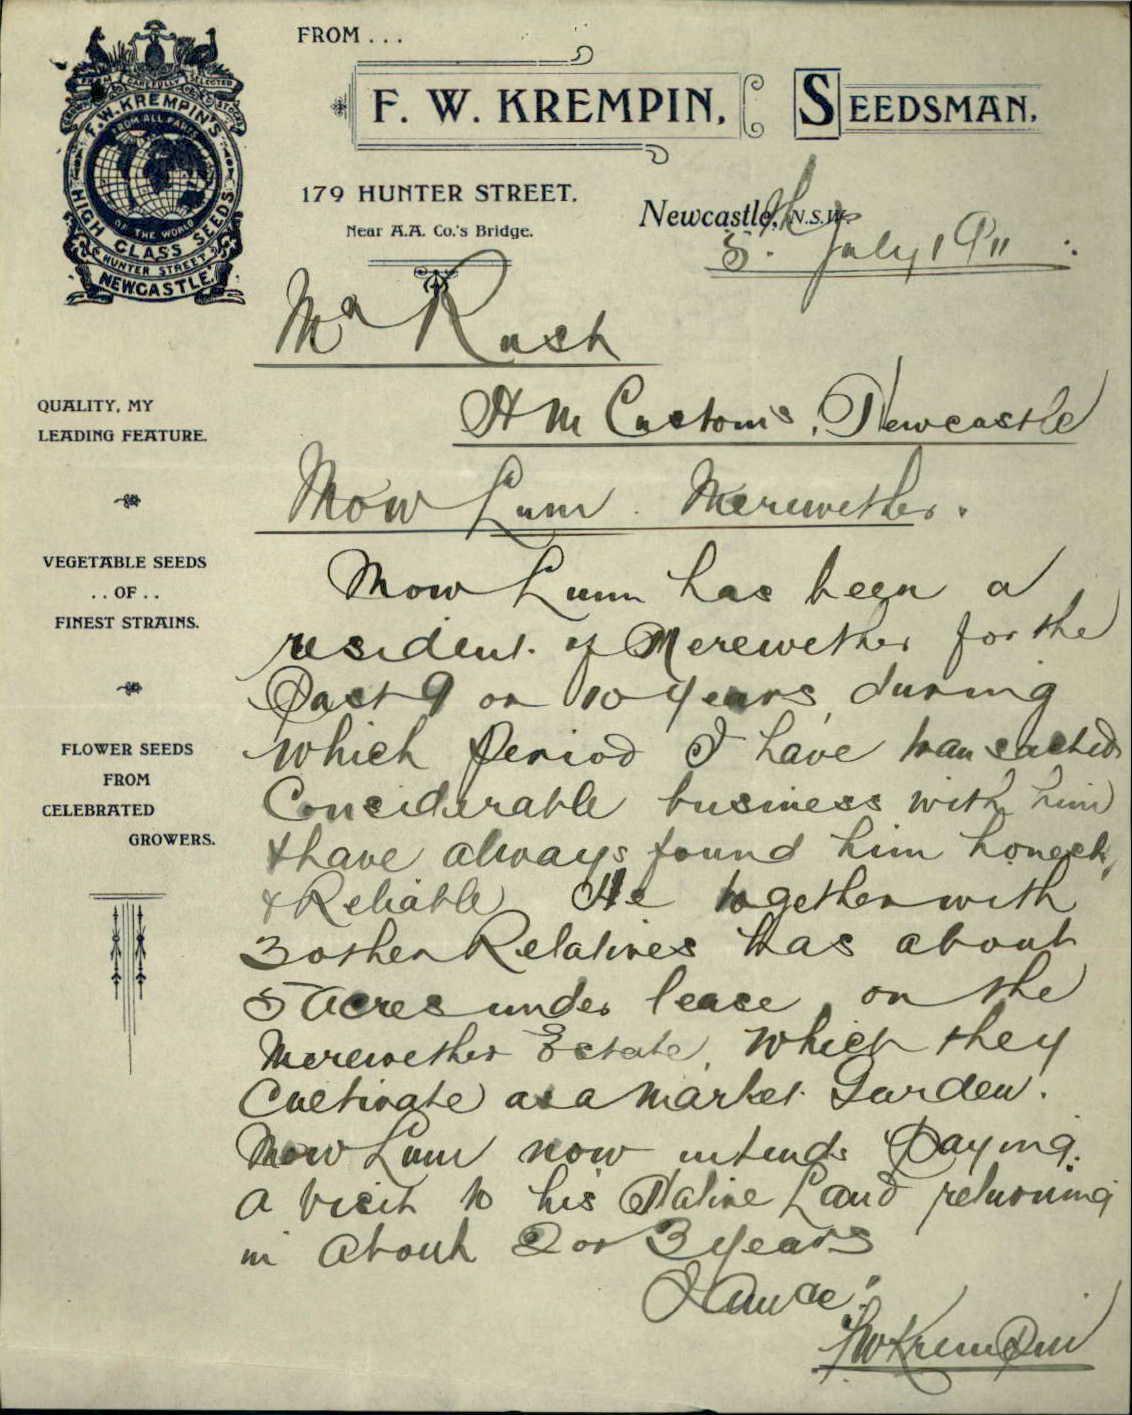 FROM . . .
F. W. KREMPIN, SEEDSMAN,
F. W. KREMPIN'S
FROM ALL PARTS
OF THE WORLD
HIGH CLASS SEEDS
HUNTER STREET
NEWCASTLE.
179 HUNTER STREET.
Near A.A. Co.'s Bridge.
Newcastle, N.S.W.
5th July 1911
Mr Rush
H M Customs, Newcastle
QUALITY, MY
LEADING FEATURE.
VEGETABLE SEEDS
. . OF . .
FINEST STRAINS.
FLOWER SEEDS
FROM
CELEBRATED
GROWERS.
Mow Lum. Merewether.
Mow Lum has been a
resident of Merewether for the
Past 9 or 10 years, during
which Period I have transacted
Considerable business with him
& have always found him honest,
& Reliable He together with
3 other Relatives has about
5 Acres under lease, on the
Merewether Estate, which they
Cultivate as a Market Garden.
Mow Lum now intends Paying
a visit to his Native Land returning
in About 2 or 3 years
I am Sir
FW Krempin